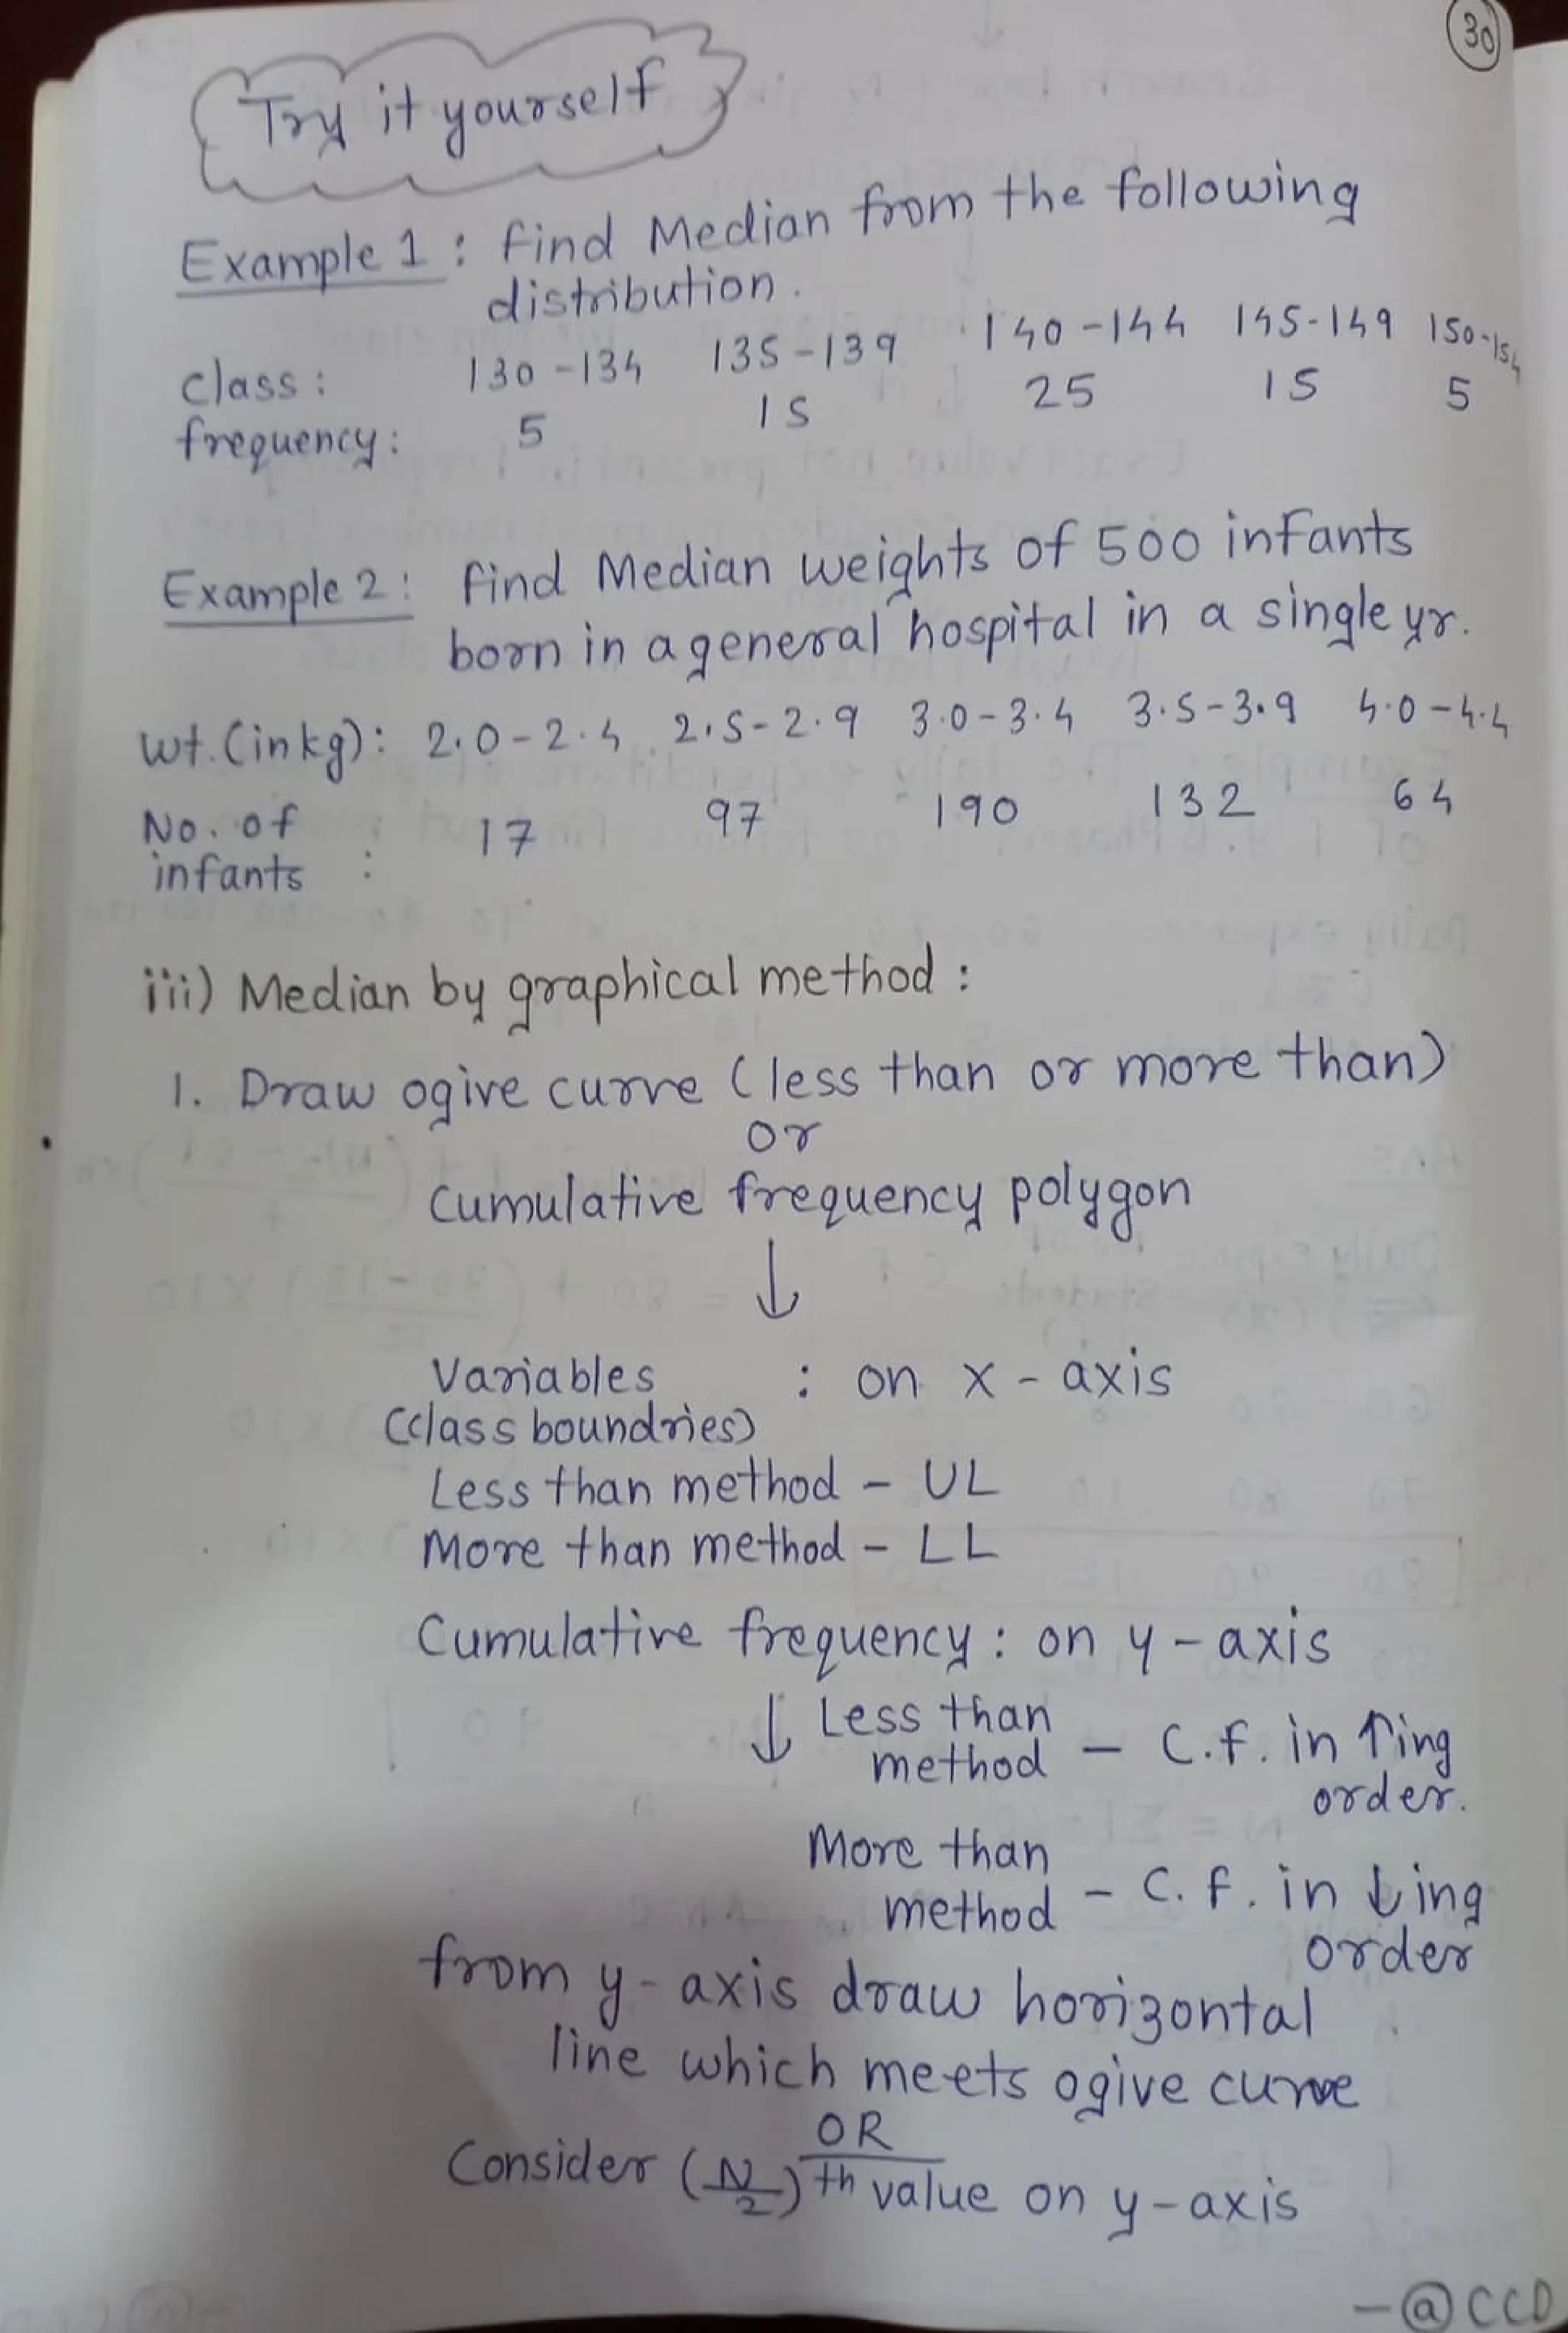 30
Try it yourself
Example 1 : find Median from the following
distribution.
class : 130-134 135-139 140-144 145-149 150-154
frequency: 5 15 25 15 5
Example 2 : find Median weights of 500 infants
born in a general hospital in a single yr.
wt. (in kg): 2.0-2.4 2.5-2.9 3.0-3.4 3.5-3.9 4.0-4.4
No. of
infants : 17 97 190 132 64
iii) Median by graphical method :
1. Draw ogive curve (less than or more than)
or
cumulative frequency polygon
↓
Variables : on x-axis
(class boundries)
Less than method - UL
More than method - LL
Cumulative frequency : on y-axis
↓ Less than
method - C.f. in ↑ing
order.
More than
method - C.f. in ↓ing
order
from y-axis draw horizontal
line which meets ogive curve
OR
Consider (N/2)th value on y-axis
-@CCD